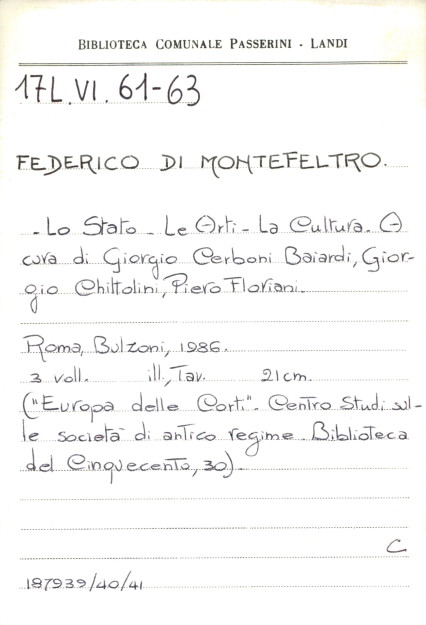 BIBLIOTECA COMUNALE PASSERINI - LANDI
17L.VI.61-63
FEDERICO DI MONTEFELTRO.
- Lo Stato - Le Arti - La Cultura. A
cura di Giorgio Cerboni Baiardi, Gior-
gio Chiltolini, Piero Floriani.
Roma, Bulzoni, 1986.
3 voll. ill., Tav. 21 cm.
("Europa delle Corti". Centro Studi sul-
le società di antico regime. Biblioteca
del Cinquecento, 30).
C
187939/40/41